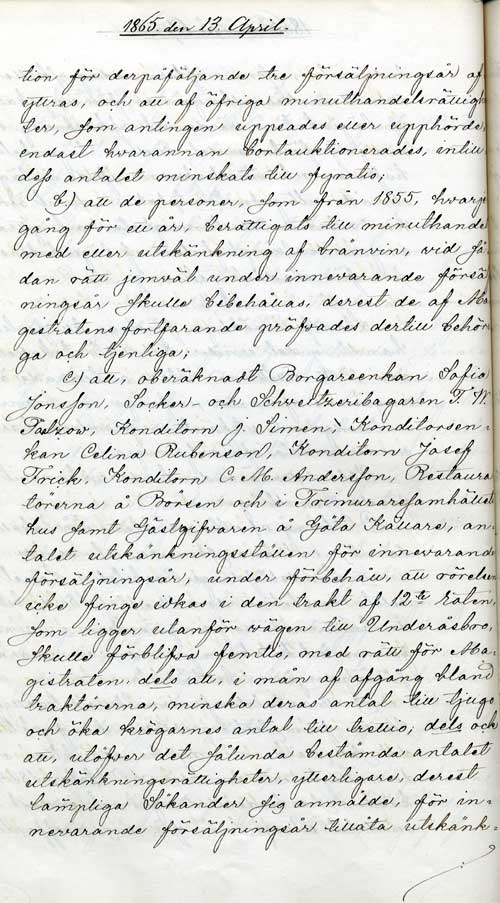 1865. den 13. April.
tion för derpåföljande tre försäljningsår af
yttras, och att af öfriga minuthandelsrättighe
ter, som antingen uppsades eller upphörde,
endast hvarannan bortauktionerades, intill
dess antalet minskats till fyratio;
b.) att de personer, som från 1855, hvarje
gång för ett år, berättigats till minuthandel
med eller utskänkning af bränvin, vid så
dan rätt jemväl under innevarande försälj
ningsår skulle bibehållas, derest de af Ma
gistraten fortfarande pröfvades dertill behöri
ga och tjenliga;
c.) att, oberäknadt Borgareenkan Sofia
Jonsson, Socker- och Schweitzeribagaren T. W.
Konditorn J. Simen, Konditorsen-
kan Celina Rubenson, Konditorn Josef
Frick, Konditorn C. M. Andersson, Restaura
törerna å Börsen och i Frimuraresamhällets
hus samt Gästgifvaren å Göta Källare, an-
talet utskänkningsställen för innevarande
försäljningsår, under förbehåll, att rörelsen
icke finge idkas i den trakt af 12te Roten,
som ligger utanför wägen till Underåsbro,
skulle förblifva femtio, med rätt för Ma-
gistraten. dels att, i mån af afgång bland
traktörerna, minska deras antal till tjugo
och öka krögarnes antal till trettio; dels och
att, utöfver det sålunda bestämda antalet
utskänkningsrättigheter, ytterligare, derest
lämpliga Sökander sig anmälde, för in-
nevarande försäljningsår tillåta utskänk-